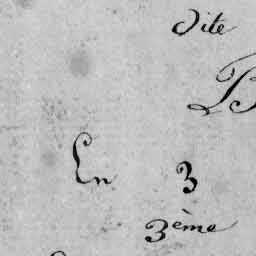 Dite
B
En 3
3ème